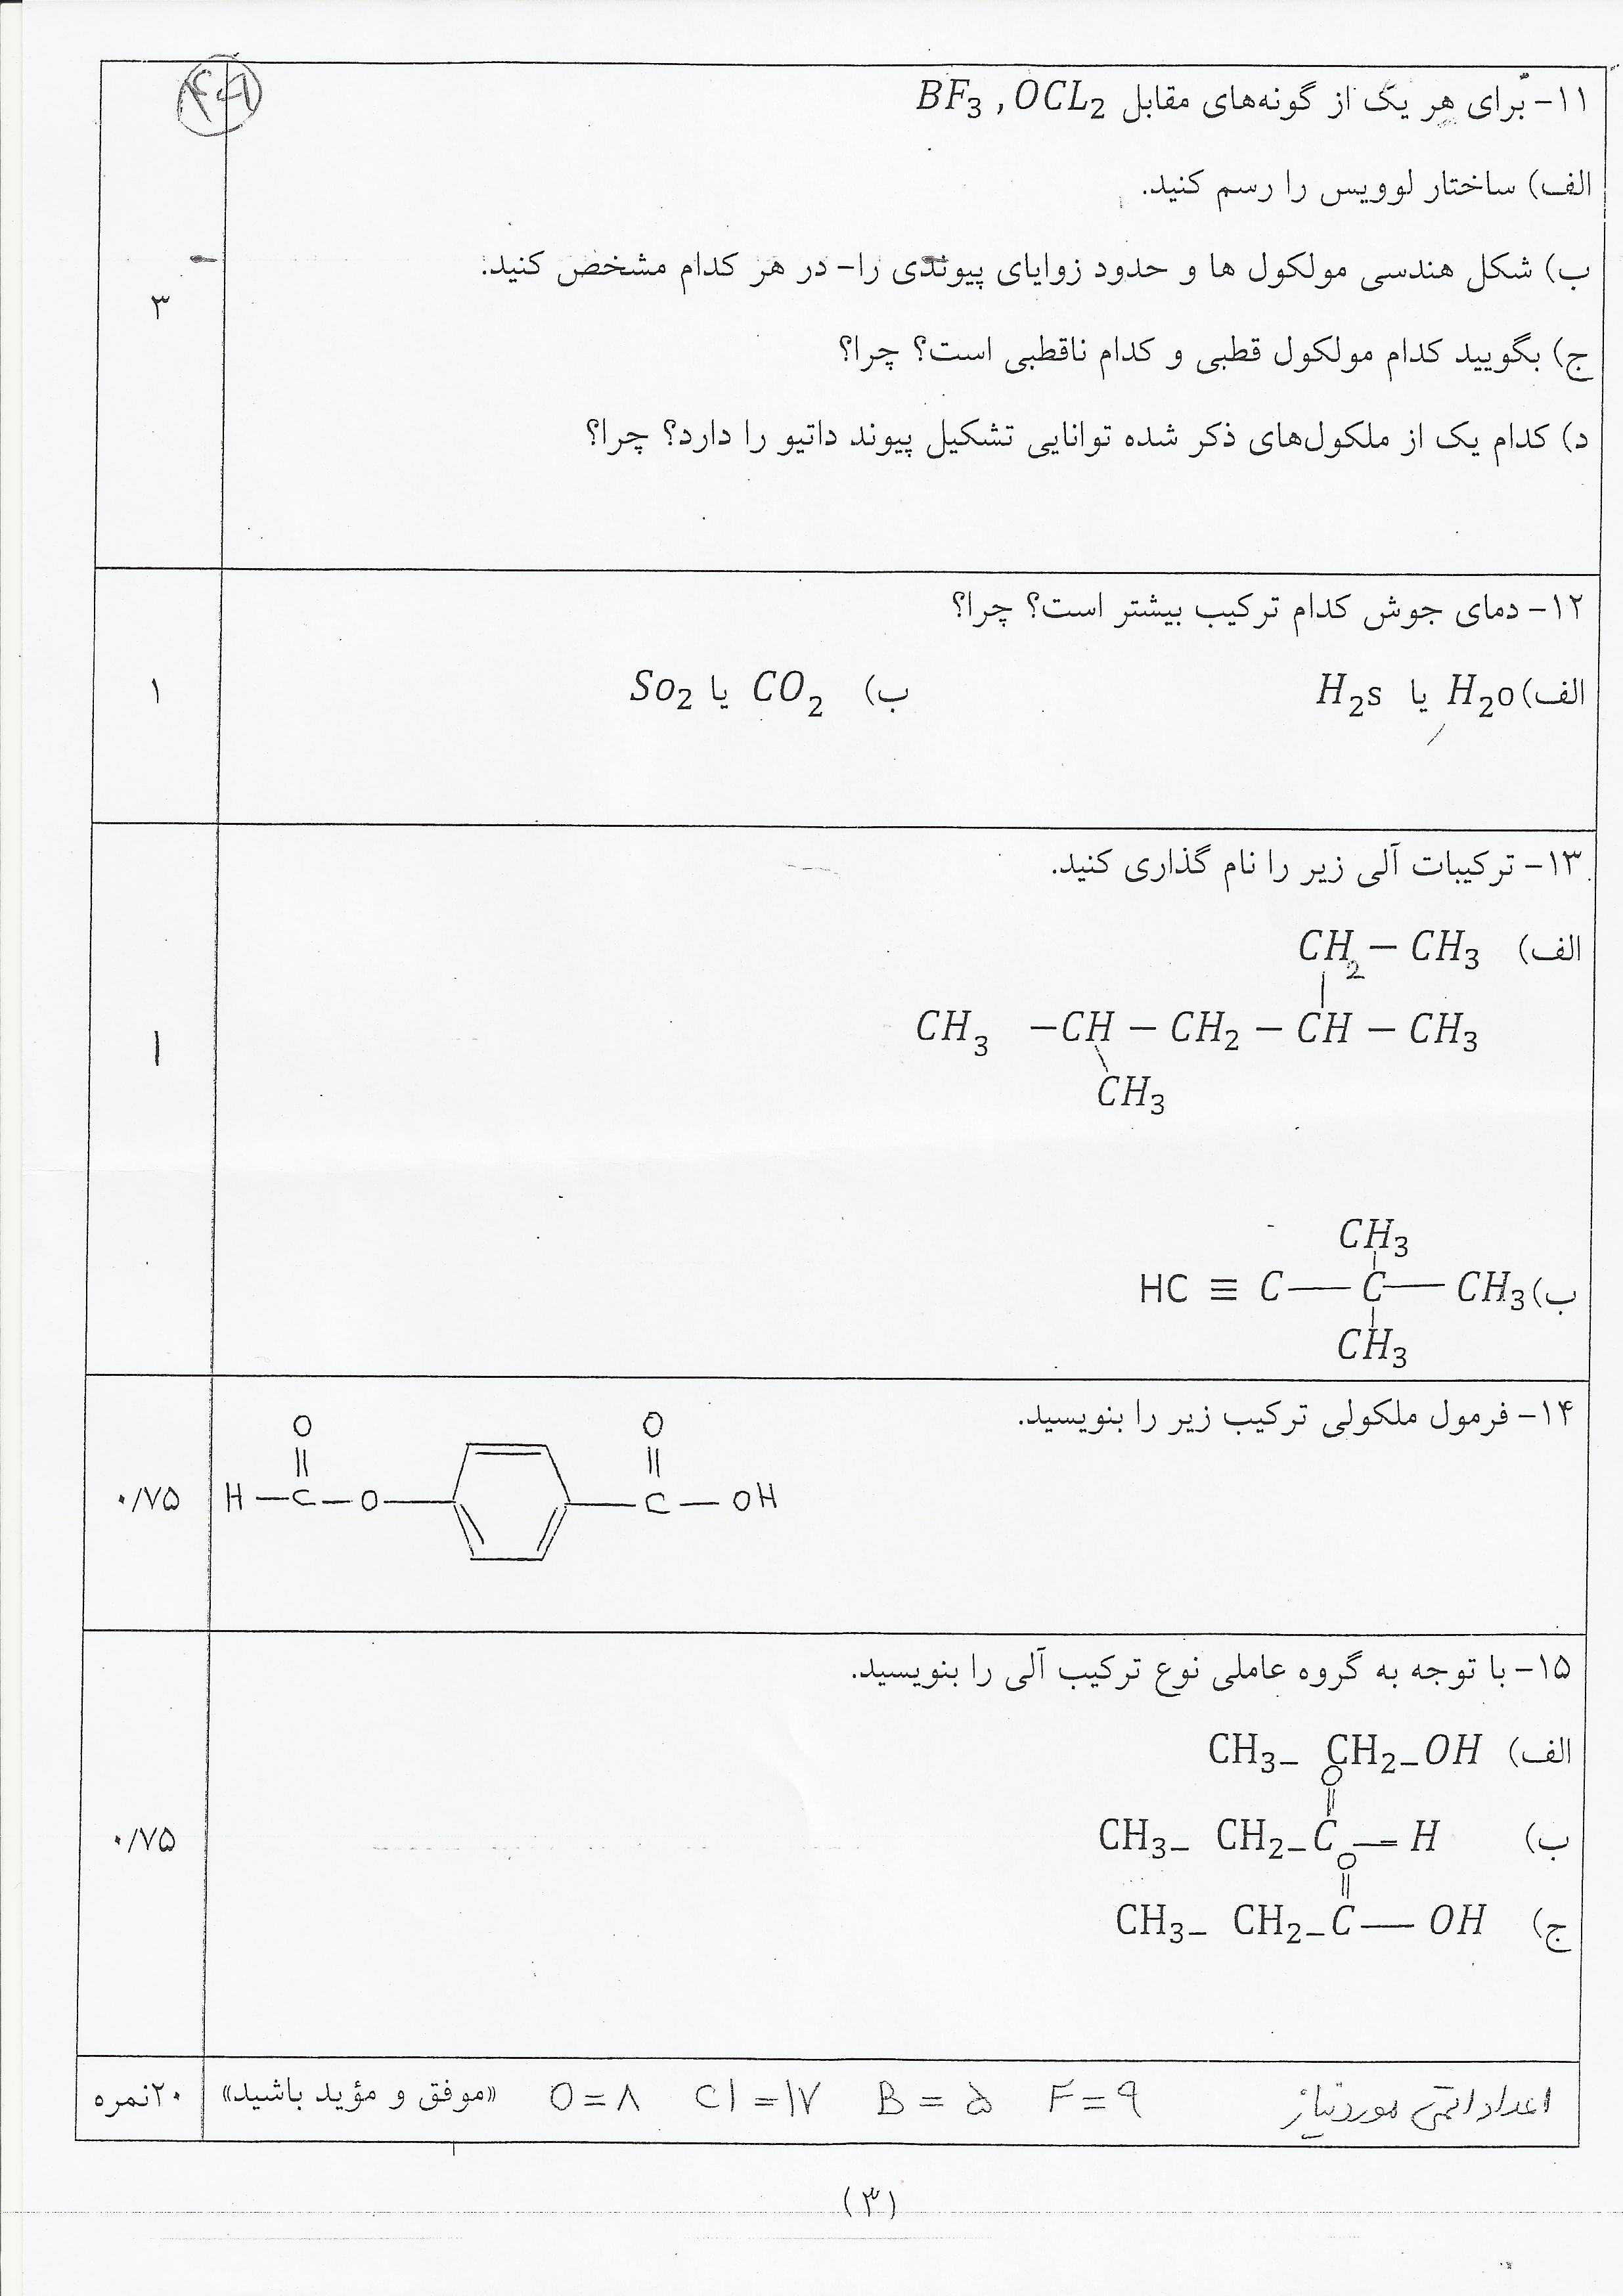 ۴۰۹
۱۱- برای هر یک از گونه‌های مقابل BF₃ , OCL₂
الف) ساختار لوویس را رسم کنید.
ب) شکل هندسی مولکول ها و حدود زوایای پیوندی را- در هر کدام مشخص کنید.
ج) بگویید کدام مولکول قطبی و کدام ناقطبی است؟ چرا؟
د) کدام یک از ملکول‌های ذکر شده توانایی تشکیل پیوند داتیو را دارد؟ چرا؟
۳
۱۲- دمای جوش کدام ترکیب بیشتر است؟ چرا؟
الف) H₂o یا H₂s ب) CO₂ یا So₂
۱
۱۳- ترکیبات آلی زیر را نام گذاری کنید.
الف) CH₂ – CH₃
CH₃ –CH – CH₂ – CH – CH₃
CH₃
CH₃
ب) HC ≡ C — C — CH₃
CH₃
۱
۱۴- فرمول ملکولی ترکیب زیر را بنویسید.
O O
H – C – O C – OH
۰/۷۵
۱۵- با توجه به گروه عاملی نوع ترکیب آلی را بنویسید.
الف) CH₃– CH₂–OH
O
ب) CH₃– CH₂–C — H
O
ج) CH₃– CH₂–C — OH
۰/۷۵
اعداد اتمی مورد نیاز F = ۹ B = ۵ Cl = ۱۷ O = ۸ «موفق و مؤید باشید» ۲۰نمره
(۳)